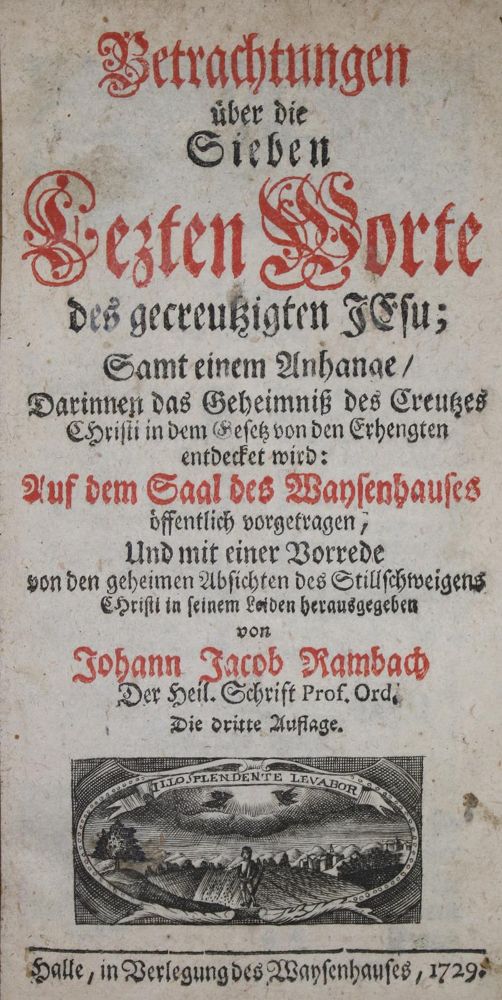 Betrachtungen
über die
Sieben
Lezten Worte
des gecreutzigten JEsu;
Samt einem Anhange/
Darinnen das Geheimniß des Creutzes
CHristi in dem Gesetz von den Erhengten
entdecket wird:
Auf dem Saal des Waysenhauses
öffentlich vorgetragen,
Und mit einer Vorrede
von den geheimen Absichten des Stillschweigens
CHristi in seinem Leiden herausgegeben
von
Johann Jacob Rambach
Der Heil. Schrift Prof. Ord.
Die dritte Auflage.
ILLO SPLENDENTE LEVABOR
Halle, in Verlegung des Waysenhauses, 1729.